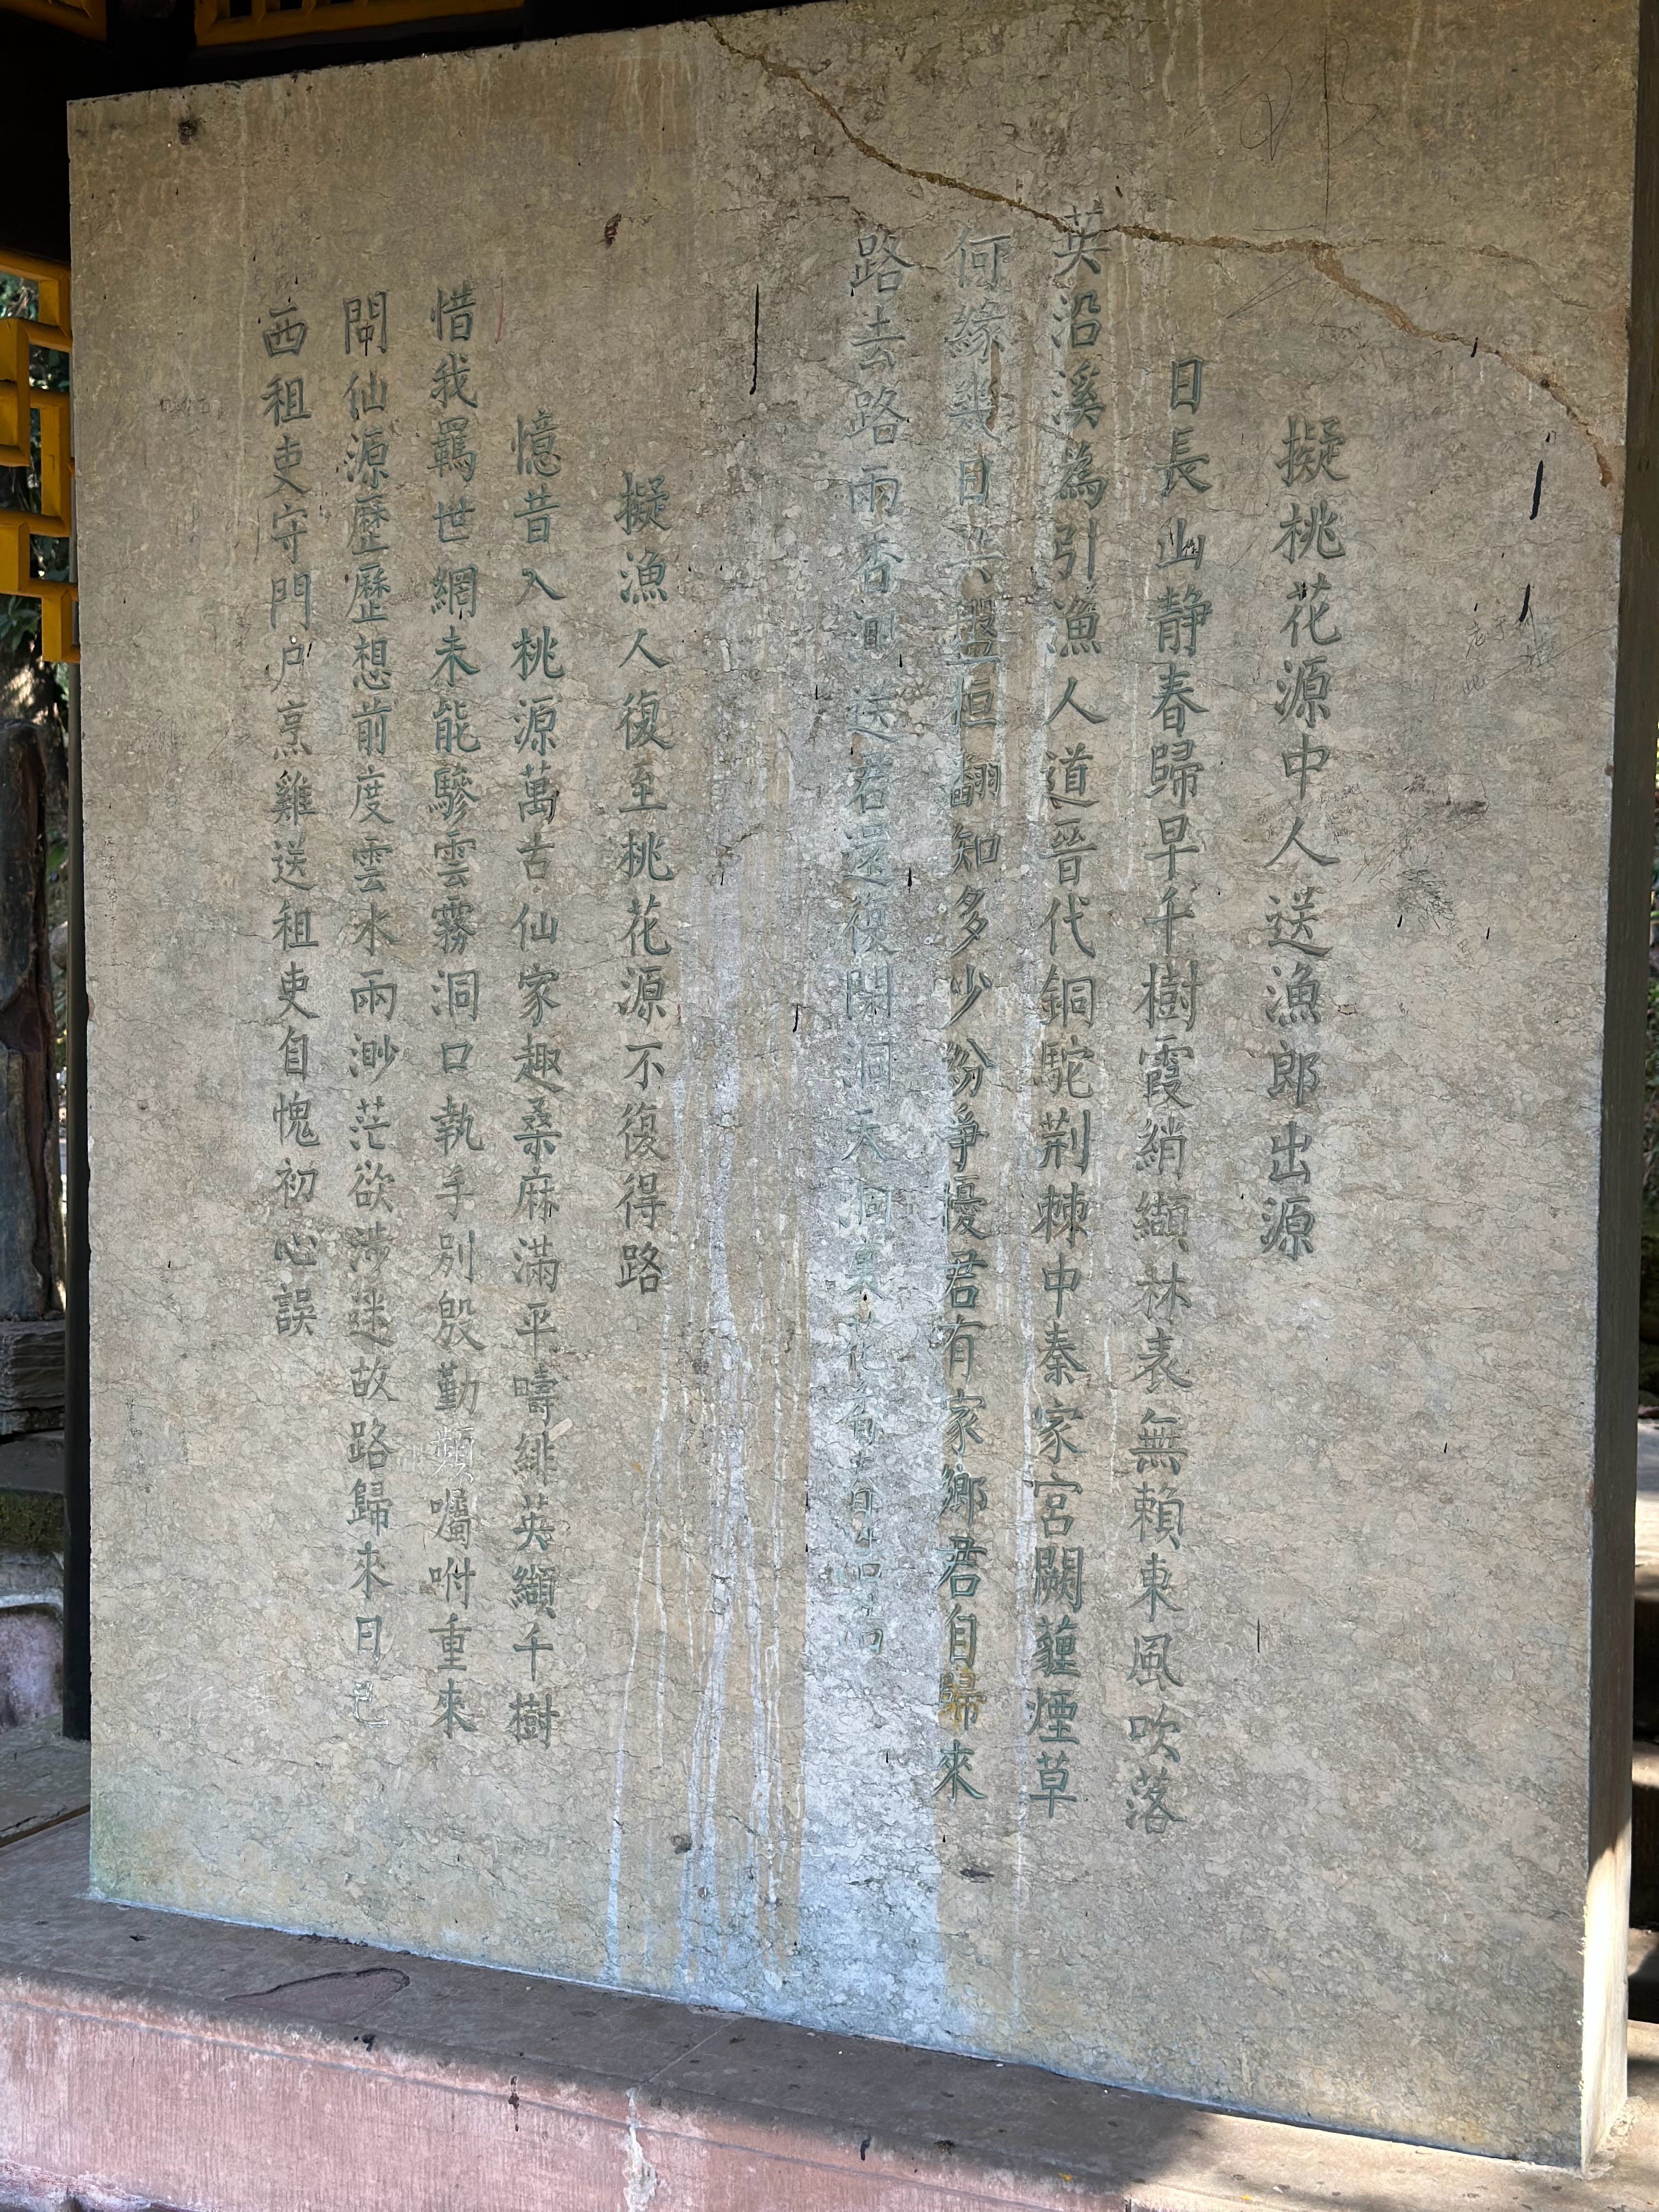 擬桃花源中人送漁郎出源
日長山靜春歸早千樹霞綃纈林表無賴東風吹落
英沿溪為引漁人道晉代銅駝荆棘中秦家宮闕蘿煙草
何緣幾日共盤桓翻知多少紛爭擾君有家鄉君自歸來
路去路兩香渺送君還復閑洞天洞裏花
擬漁人復至桃花源不復得路
憶昔入桃源萬古仙家趣桑麻滿平疇緋英纈千樹
惜我羈世網未能驂雲霧洞口執手別殷勤頻囑咐重來
閙仙源歷歷想前度雲水兩渺茫欲涉迷故路歸來日已
西租吏守門户烹雞送租吏自愧初心誤